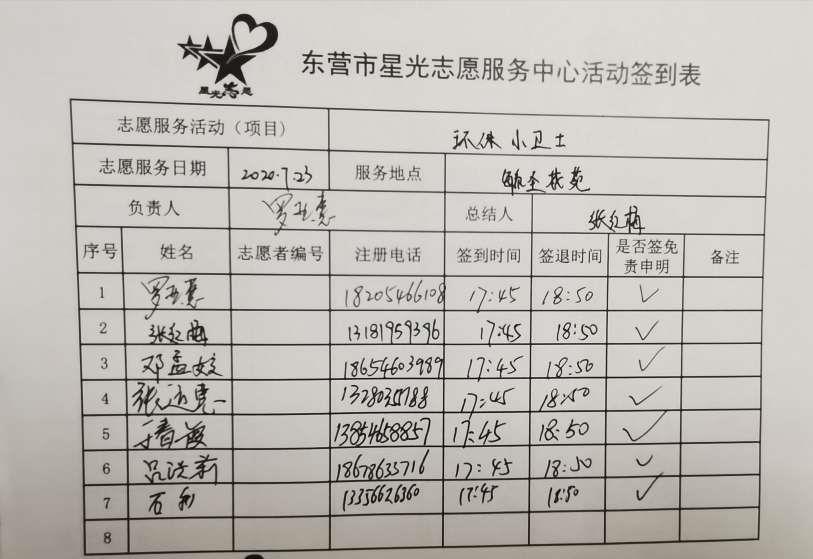 东营市星光志愿服务中心活动签到表
志愿服务活动（项目） 环保小卫士
志愿服务日期 2020.7.23 服务地点
负责人 罗亚惠 总结人 张红梅
序号 姓名 志愿者编号 注册电话 签到时间 签退时间 是否签免责申明 备注
1 罗亚惠 18205466108 17:45 18:50 ✓
2 张红梅 13181959396 17:45 18:50 ✓
3 邓孟姣 18654603989 17:45 18:50 ✓
4 17:45 18:50 ✓
5 13854658857 17:45 18:50 ✓
6 吕洪新 18678635716 17:45 18:50 ✓
7 石利 13356626360 17:45 18:50 ✓
8